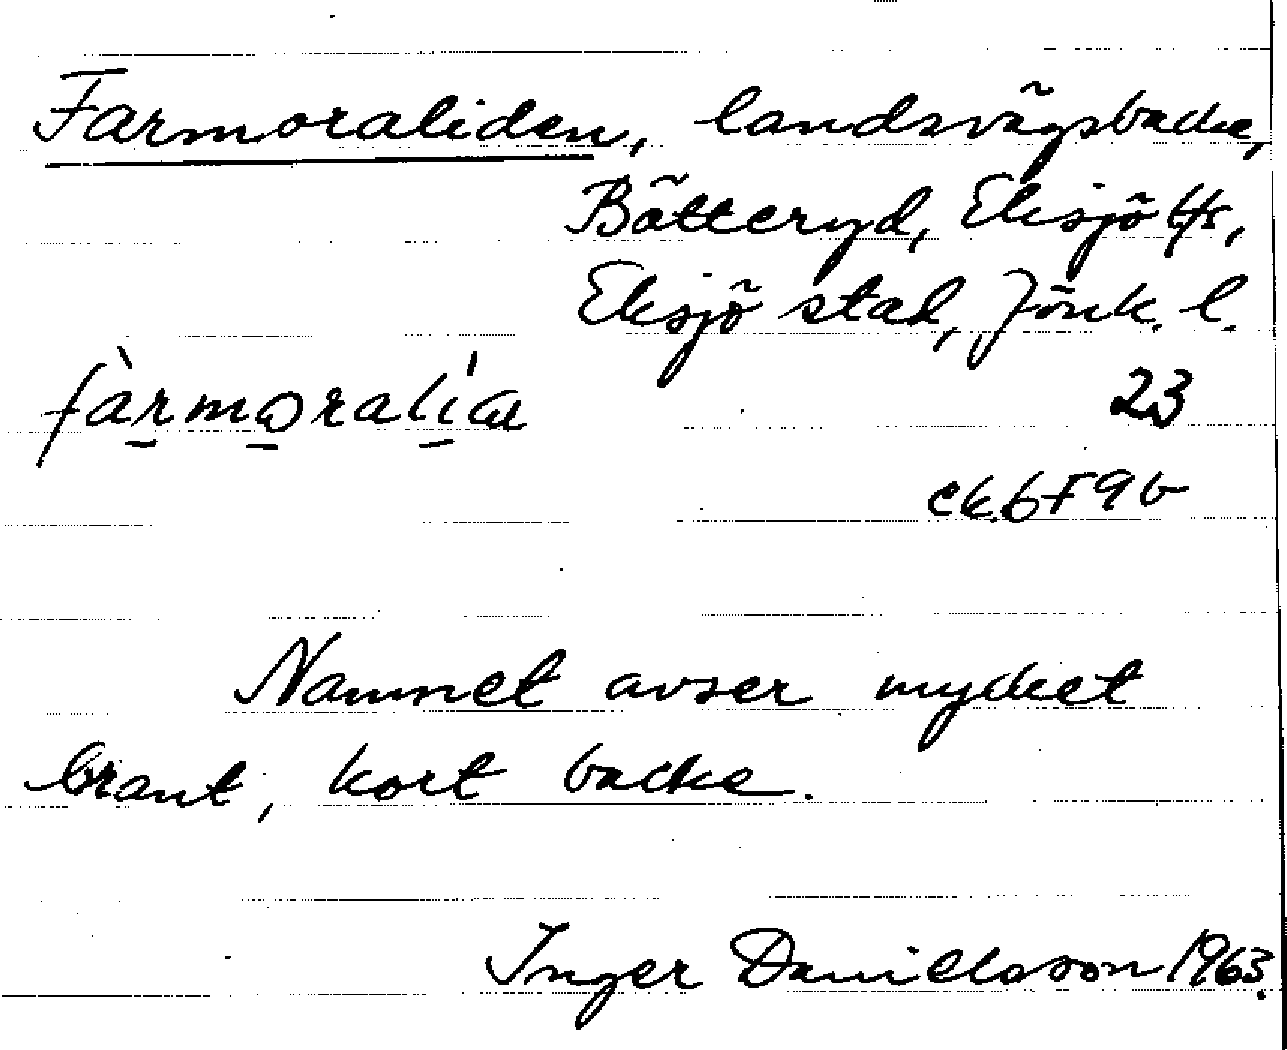 Farmoraliden, landsvägsbacke,
Bätteryd, Eksjö lfs,
Eksjö stad, Jönk. l.
23
ek. 6F9b
Namnet avser mycket
brant, kort backe.
Inger Danielsson 1963.